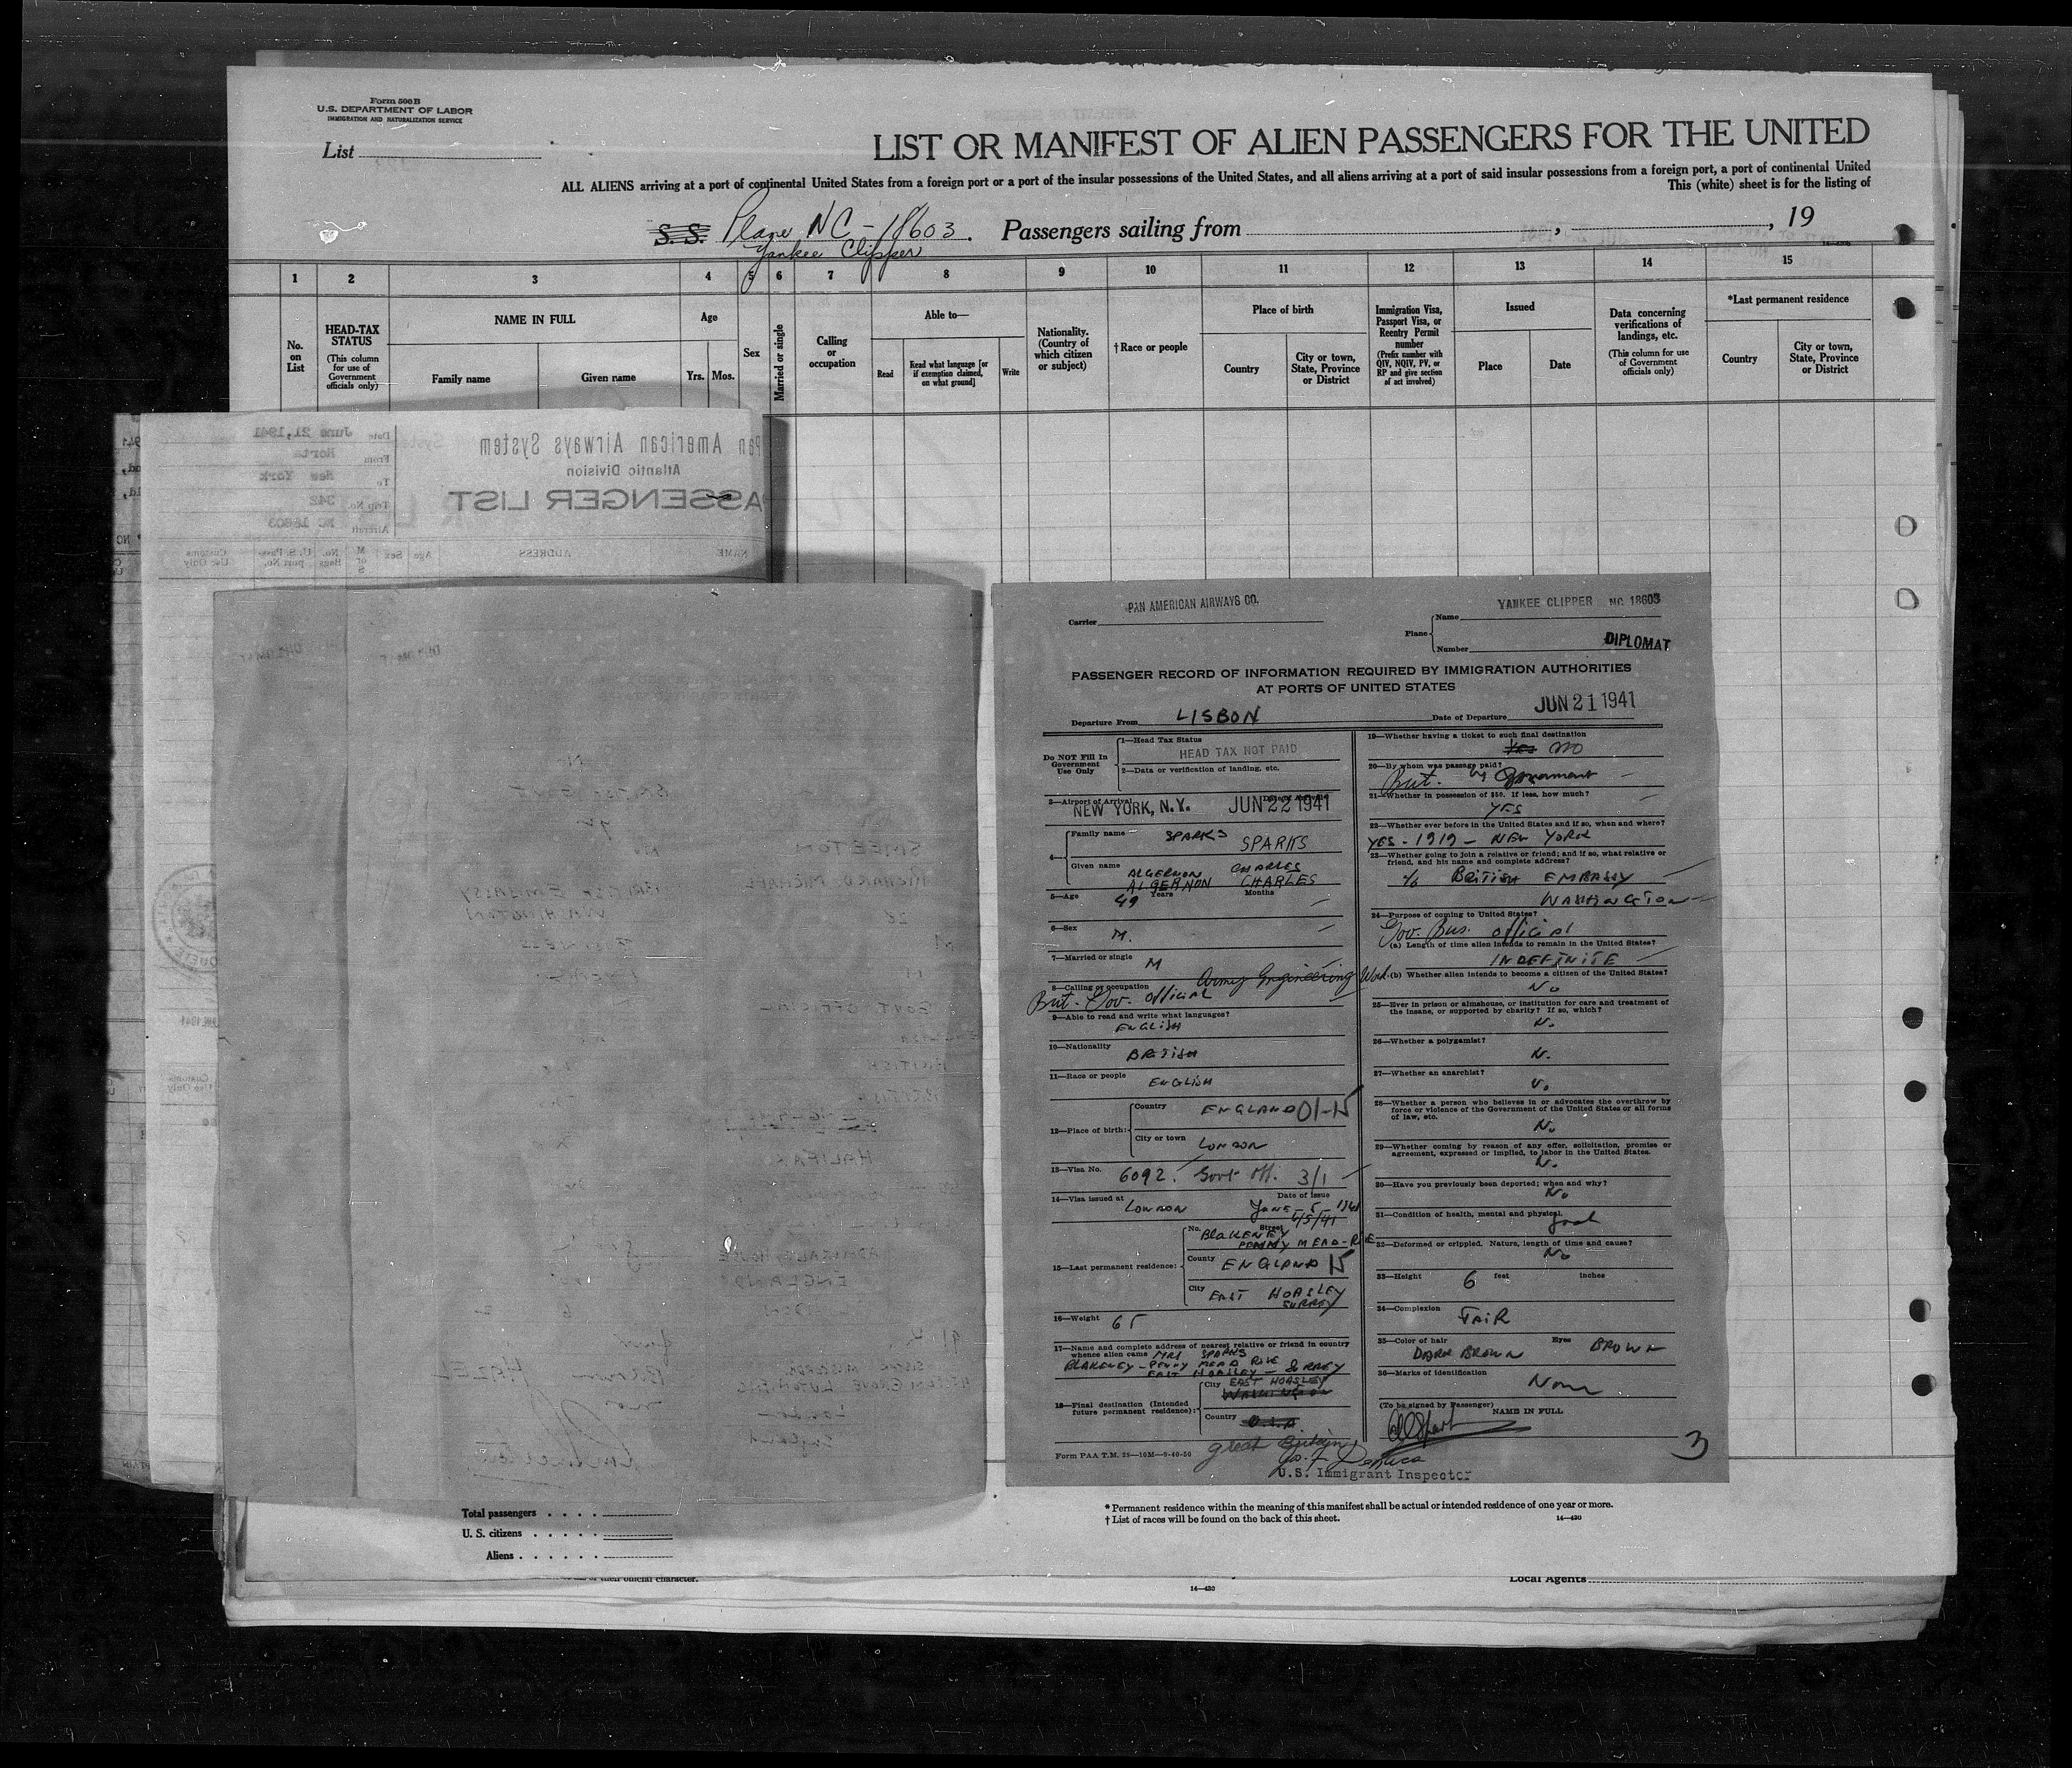 Form 500B
U.S. DEPARTMENT OF LABOR
IMMIGRATION AND NATURALIZATION SERVICE
List
LIST OR MANIFEST OF ALIEN PASSENGERS FOR THE UNITED
ALL ALIENS arriving at a port of continental United States from a foreign port or a port of the insular possessions of the United States, and all aliens arriving at a port of said insular possessions from a foreign port, a port of continental United
This (white) sheet is for the listing of
S. S. Plane NC-18603. Passengers sailing from , , 19
Yankee Clipper
1 2 3 4 5 6 7 8 9 10 11 12 13 14 15
No. on List
HEAD-TAX STATUS
(This column for use of Government officials only)
NAME IN FULL
Family name
Given name
Age
Yrs.
Mos.
Sex
Married or single
Calling or occupation
Able to—
Read
Read what language [or if exemption claimed, on what ground]
Write
Nationality. (Country of which citizen or subject)
†Race or people
Place of birth
Country
City or town, State, Province or District
Immigration Visa, Passport Visa, or Reentry Permit number
(Prefix number with QIV, NQIV, PV, or RP and give section of act involved)
Issued
Place
Date
Data concerning verifications of landings, etc.
(This column for use of Government officials only)
*Last permanent residence
Country
City or town, State, Province or District
Pan American Airways System
Atlantic Division
PASSENGER LIST
Date June 21, 1941
From Horta
To New York
Trip No. 342
Aircraft NC 18603
NAME ADDRESS Age Sex M or S No. Bags U. S. Pass-port No. Customs Use Only
PAN AMERICAN AIRWAYS CO.
Carrier
YANKEE CLIPPER NC 18603
Plane Name
Number
DIPLOMAT
PASSENGER RECORD OF INFORMATION REQUIRED BY IMMIGRATION AUTHORITIES
AT PORTS OF UNITED STATES
Departure From LISBON Date of Departure JUN 21 1941
Do NOT Fill In Government Use Only
1—Head Tax Status
HEAD TAX NOT PAID
2—Data or verification of landing, etc.
3—Airport of Arrival
NEW YORK, N.Y. JUN 22 1941
4— Family name SPARKS SPARKS
Given name ALGERNON CHARLES
ALGERNON CHARLES
5—Age 49 Years Months
6—Sex M.
7—Married or single M
8—Calling or occupation Army Engineering Work
Brit. Gov. official
9—Able to read and write what languages?
ENGLISH
10—Nationality BRITISH
11—Race or people ENGLISH
12—Place of birth: Country ENGLAND 01-15
City or town LONDON
13—Visa No. 6092. Govt Off. 3/1
14—Visa issued at LONDON Date of Issue JUNE-5-1941
6/5/41
15—Last permanent residence: No. Street BLAKENEY
PENNY MEAD-RISE
County ENGLAND 15
City EAST HORSLEY
SURREY
16—Weight 65
17—Name and complete address of nearest relative or friend in country whence alien came MRS SPARKS
BLAKENEY-PENNY MEAD RISE
EAST HORSLEY - SURREY
18—Final destination (Intended future permanent residence): City EAST HORSLEY
WASHINGTON
Country U.S.A
Great Britain
Form PAA T.M. 25—10M—9-40-50
U.S. Immigrant Inspector
19—Whether having a ticket to such final destination
YES NO
20—By whom was passage paid?
Brit. Government
21—Whether in possession of $50. If less, how much?
YES
22—Whether ever before in the United States and if so, when and where?
YES - 1919 - NEW YORK
23—Whether going to join a relative or friend; and if so, what relative or friend, and his name and complete address?
c/o BRITISH EMBASSY
WASHINGTON
24—Purpose of coming to United States?
Gov. Bus. official
(a) Length of time alien intends to remain in the United States?
INDEFINITE
(b) Whether alien intends to become a citizen of the United States?
No
25—Ever in prison or almshouse, or institution for care and treatment of the insane, or supported by charity? If so, which?
No
26—Whether a polygamist?
No
27—Whether an anarchist?
No
28—Whether a person who believes in or advocates the overthrow by force or violence of the Government of the United States or all forms of law, etc.
No
29—Whether coming by reason of any offer, solicitation, promise or agreement, expressed or implied, to labor in the United States.
No
30—Have you previously been deported; when and why?
No
31—Condition of health, mental and physical.
good
32—Deformed or crippled. Nature, length of time and cause?
No
33—Height 6 feet inches
34—Complexion FAIR
35—Color of hair DARK BROWN Eyes BROWN
36—Marks of identification
None
(To be signed by Passenger) NAME IN FULL
3
Total passengers
U. S. citizens
Aliens
* Permanent residence within the meaning of this manifest shall be actual or intended residence of one year or more.
† List of races will be found on the back of this sheet.
14—430
of their official character.
14—430
Local Agents